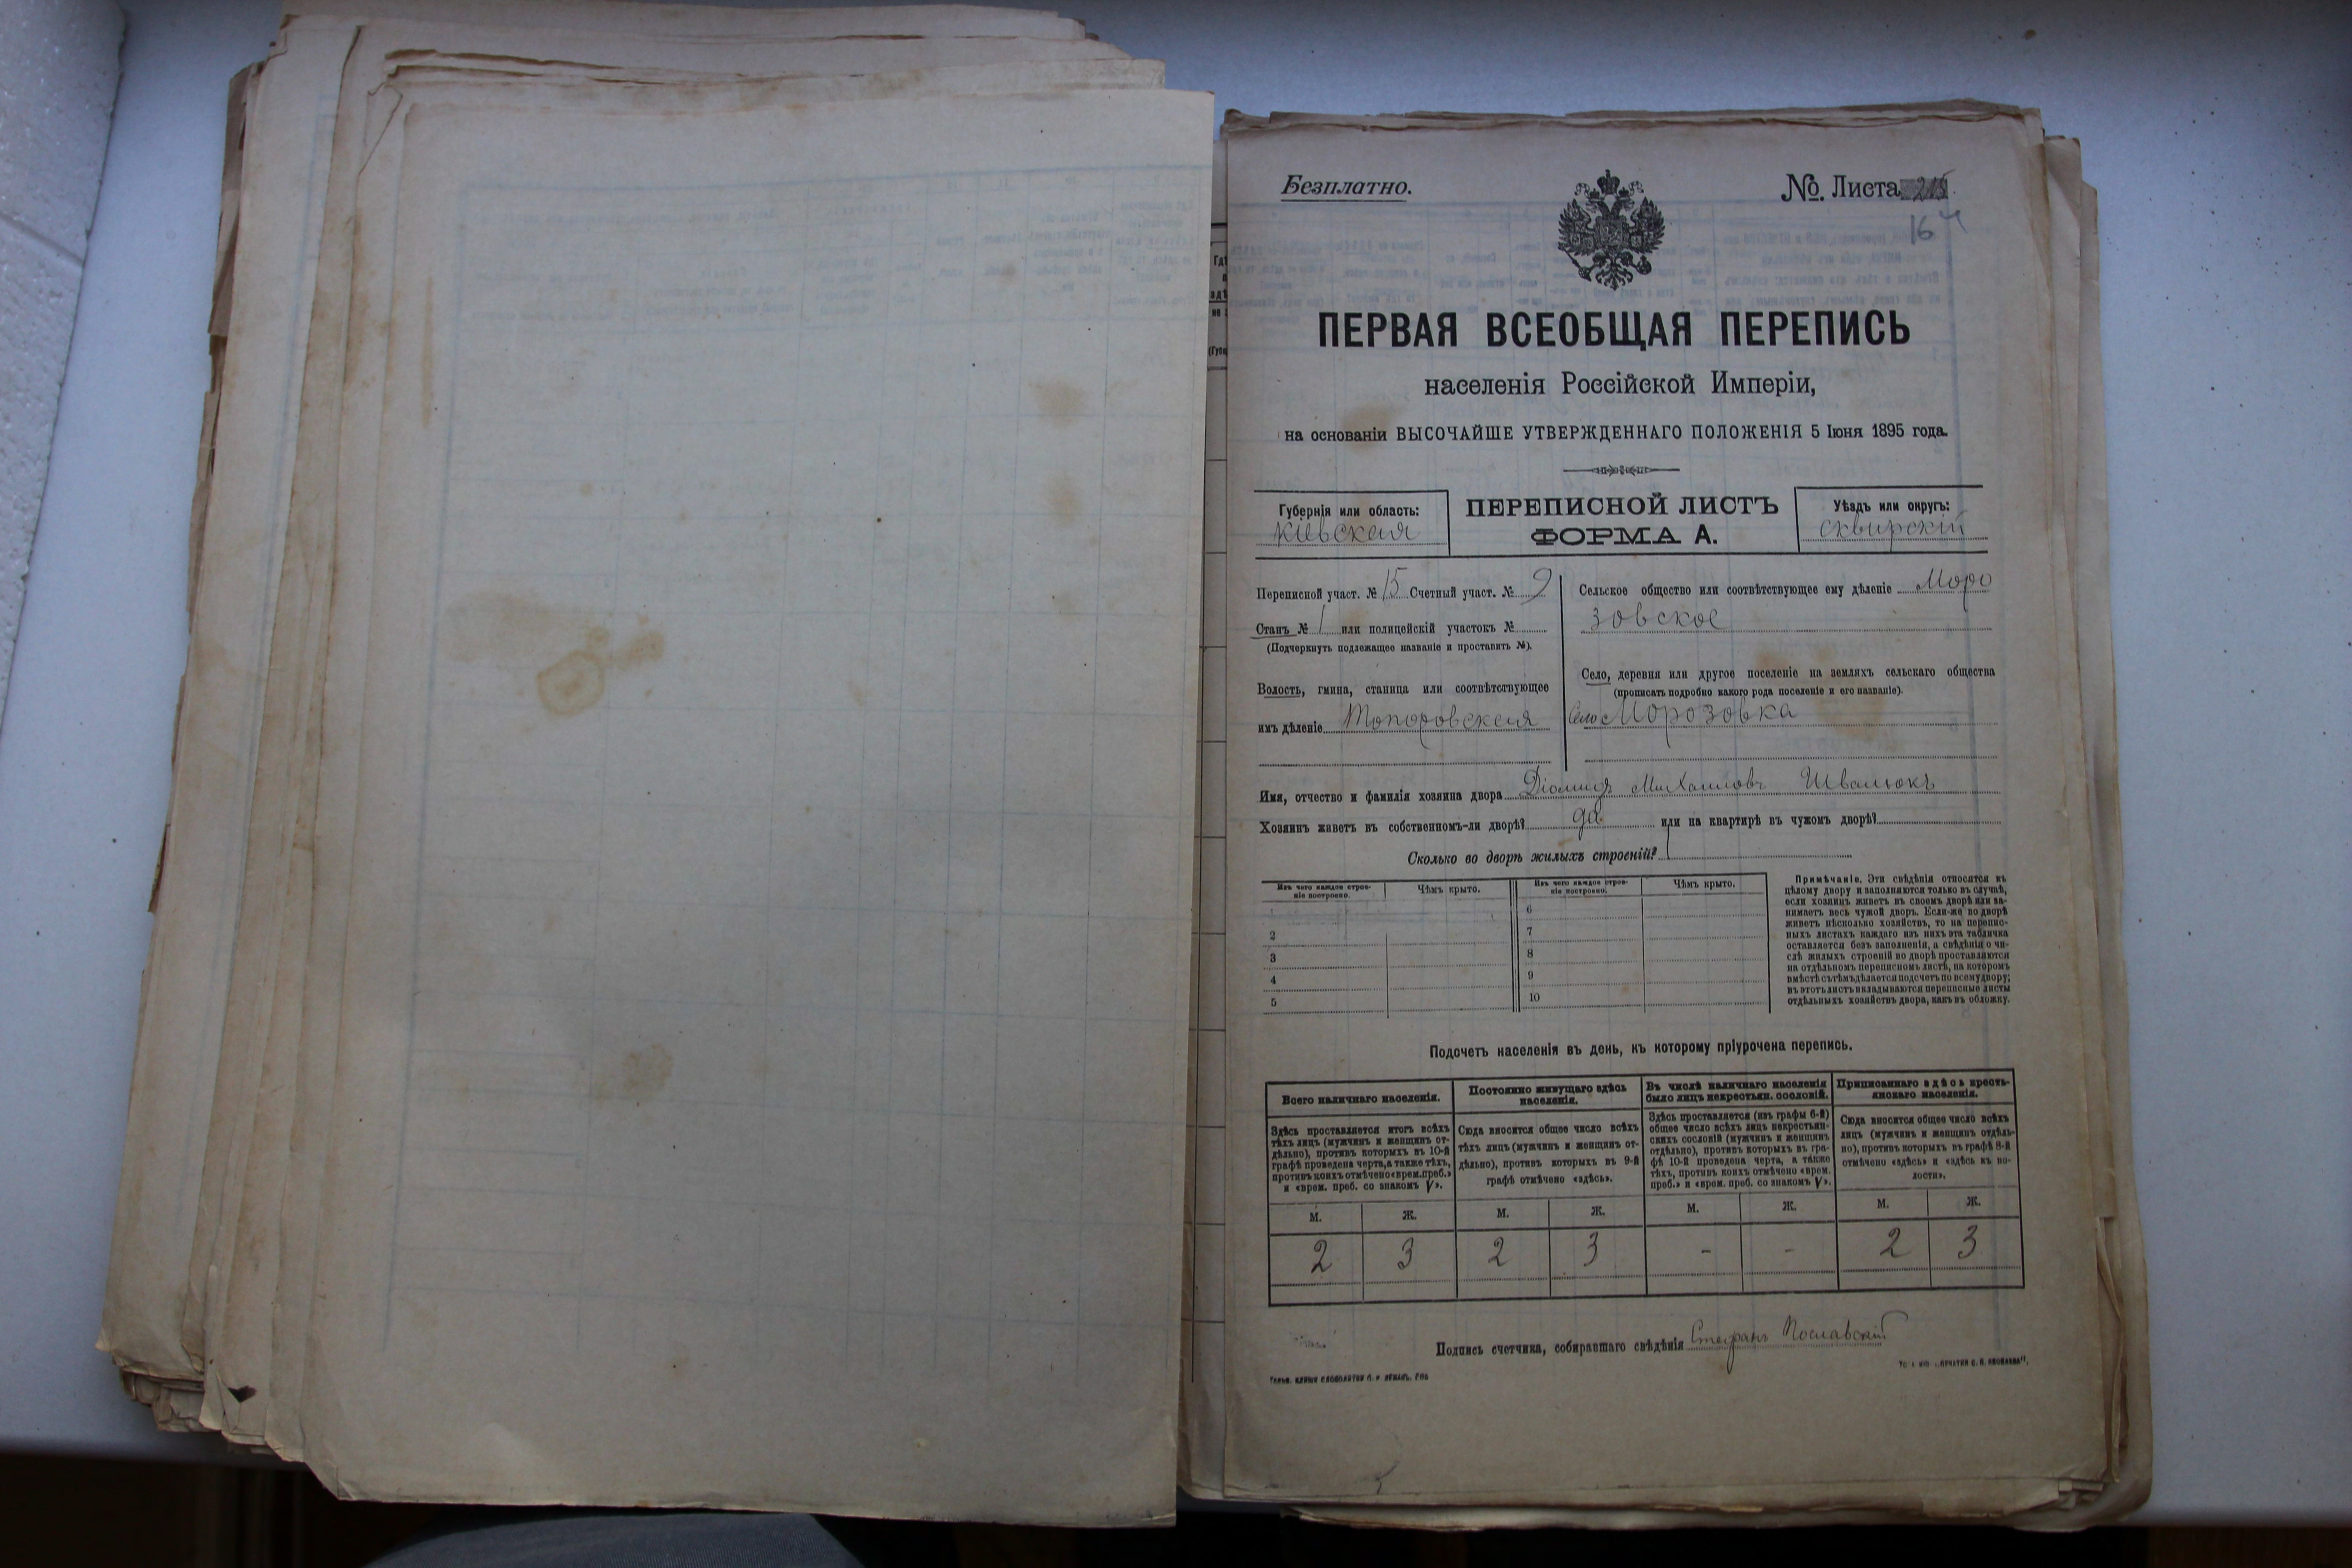 Безплатно.
№ Листа 215
164
ПЕРВАЯ ВСЕОБЩАЯ ПЕРЕПИСЬ
населенія Россійской Имперіи,
на основаніи ВЫСОЧАЙШЕ УТВЕРЖДЕННАГО ПОЛОЖЕНІЯ 5 Іюня 1895 года.
Губернія или область:
Кіевская
ПЕРЕПИСНОЙ ЛИСТЪ
ФОРМА А.
Уѣздъ или округъ:
Сквирскій
Переписной участ. № 15 Счетный участ. № 9
Станъ № 1 или полицейскій участокъ №
(Подчеркнуть подлежащее названіе и проставить №).
Волость, гмина, станица или соотвѣтствующее
имъ дѣленіе Топоровская
Сельское общество или соотвѣтствующее ему дѣленіе Моро
зовское
Село, деревня или другое поселеніе на земляхъ сельскаго общества
(прописать подробно какого рода поселеніе и его названіе).
Село Морозовка
Имя, отчество и фамилія хозяина двора Діомидъ Михаиловъ Швалюкъ
Хозяинъ живетъ въ собственномъ-ли дворѣ? да или на квартирѣ въ чужомъ дворѣ?
Сколько во дворѣ жилыхъ строеній? 1
Изъ чего каждое строе-
ніе построено.
Чѣмъ крыто.
2
3
4
5
Изъ чего каждое строе-
ніе построено.
Чѣмъ крыто.
6
7
8
9
10
Примѣчаніе. Эти свѣдѣнія относятся къ
цѣлому двору и заполняются только въ случаѣ,
если хозяинъ живетъ въ своемъ дворѣ или за-
нимаетъ весь чужой дворъ. Если-же во дворѣ
живетъ нѣсколько хозяйствъ, то на перепис-
ныхъ листахъ каждаго изъ нихъ эта табличка
оставляется безъ заполненія, а свѣдѣнія о чи-
слѣ жилыхъ строеній во дворѣ проставляются
на отдѣльномъ переписномъ листѣ, на которомъ
вмѣстѣ съ тѣмъ дѣлается подсчетъ по всему двору;
въ этотъ листъ вкладываются переписные листы
отдѣльныхъ хозяйствъ двора, какъ въ обложку.
Подсчетъ населенія въ день, къ которому пріурочена перепись.
Всего наличнаго населенія.
Здѣсь проставляется итогъ всѣхъ
тѣхъ лицъ (мужчинъ и женщинъ от-
дѣльно), противъ которыхъ въ 10-й
графѣ проведена черта, а также тѣхъ,
противъ коихъ отмѣчено «врем. преб.»
и «врем. преб. со знакомъ V».
М. Ж.
2 3
Постоянно живущаго здѣсь
населенія.
Сюда вносится общее число всѣхъ
тѣхъ лицъ (мужчинъ и женщинъ от-
дѣльно), противъ которыхъ въ 9-й
графѣ отмѣчено «здѣсь».
М. Ж.
2 3
Въ числѣ наличнаго населенія
было лицъ некрестьян. сословій.
Здѣсь проставляется (изъ графы 6-й)
общее число всѣхъ лицъ некрестьян-
скихъ сословій (мужчинъ и женщинъ
отдѣльно), противъ которыхъ въ гра-
фѣ 10-й проведена черта, а также
тѣхъ, противъ коихъ отмѣчено «врем.
преб.» и «врем. преб. со знакомъ V».
М. Ж.
- -
Приписаннаго здѣсь кресть-
янскаго населенія.
Сюда вносится общее число всѣхъ
лицъ (мужчинъ и женщинъ отдѣль-
но), противъ которыхъ въ графѣ 8-й
отмѣчено «здѣсь» и «здѣсь къ во-
лости».
М. Ж.
2 3
Подпись счетчика, собиравшаго свѣдѣнія Стефанъ Пославскій